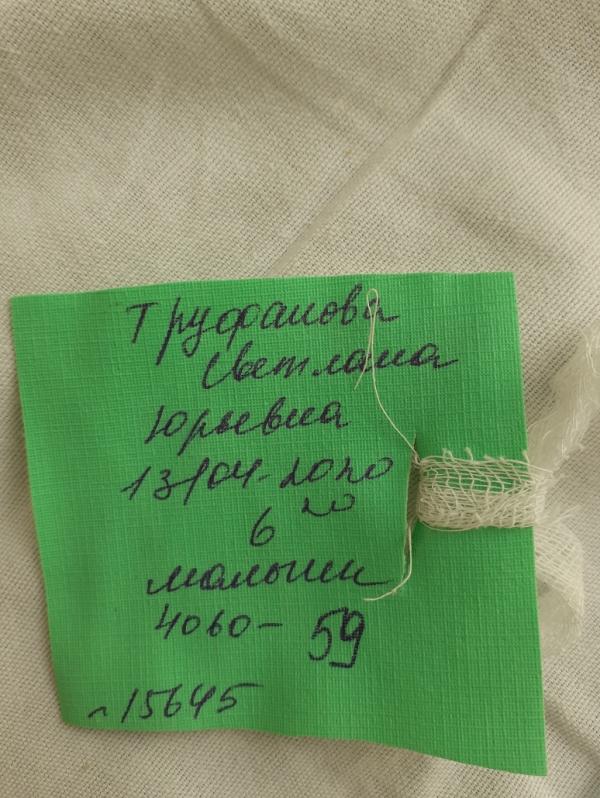 Труфанова
Светлана
Юрьевна
13/04-2020
20
6
малыш
4060- 59
15645